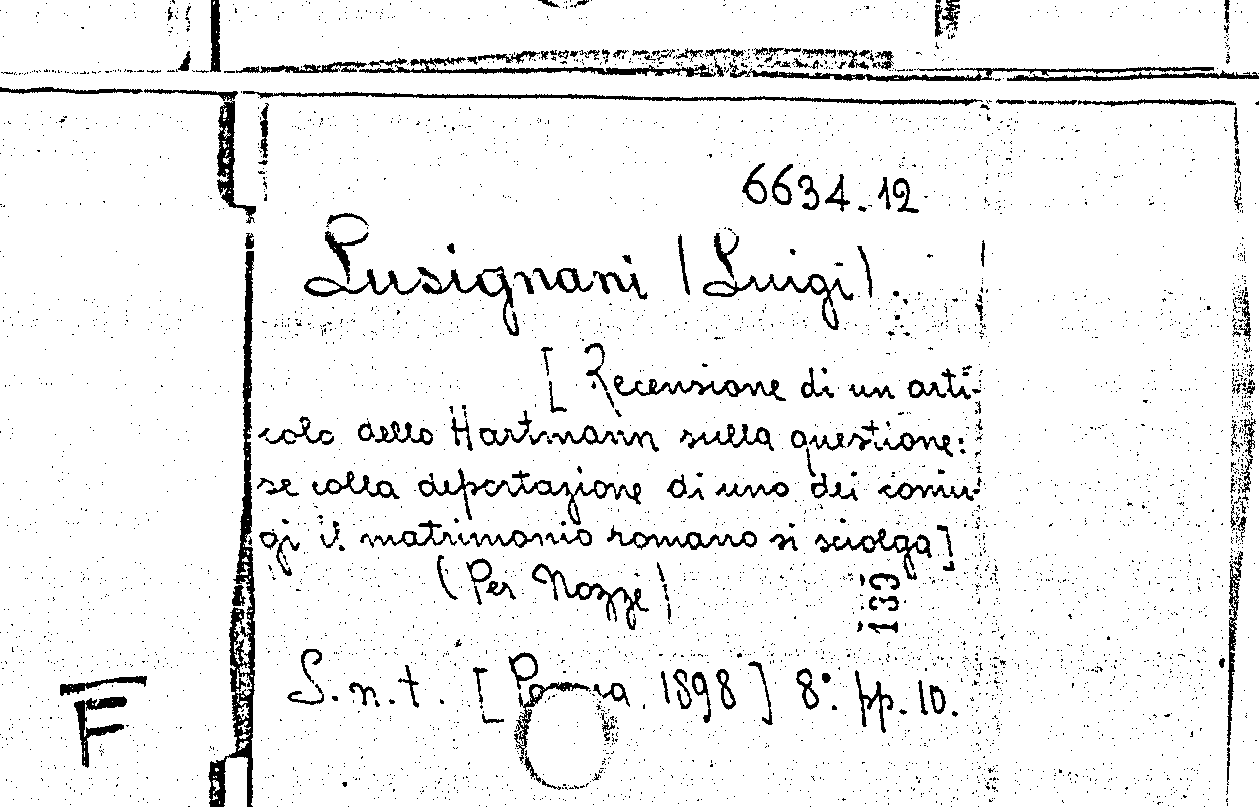 6634.12
Lusignani (Luigi).
[Recensione di un arti-
colo dello Hartmann sulla questione:
se colla deportazione di uno dei coniu-
gi il matrimonio romano si sciolga]
(Per Nozze)
139
S.n.t. [Parma. 1898] 8º. pp. 10.
F